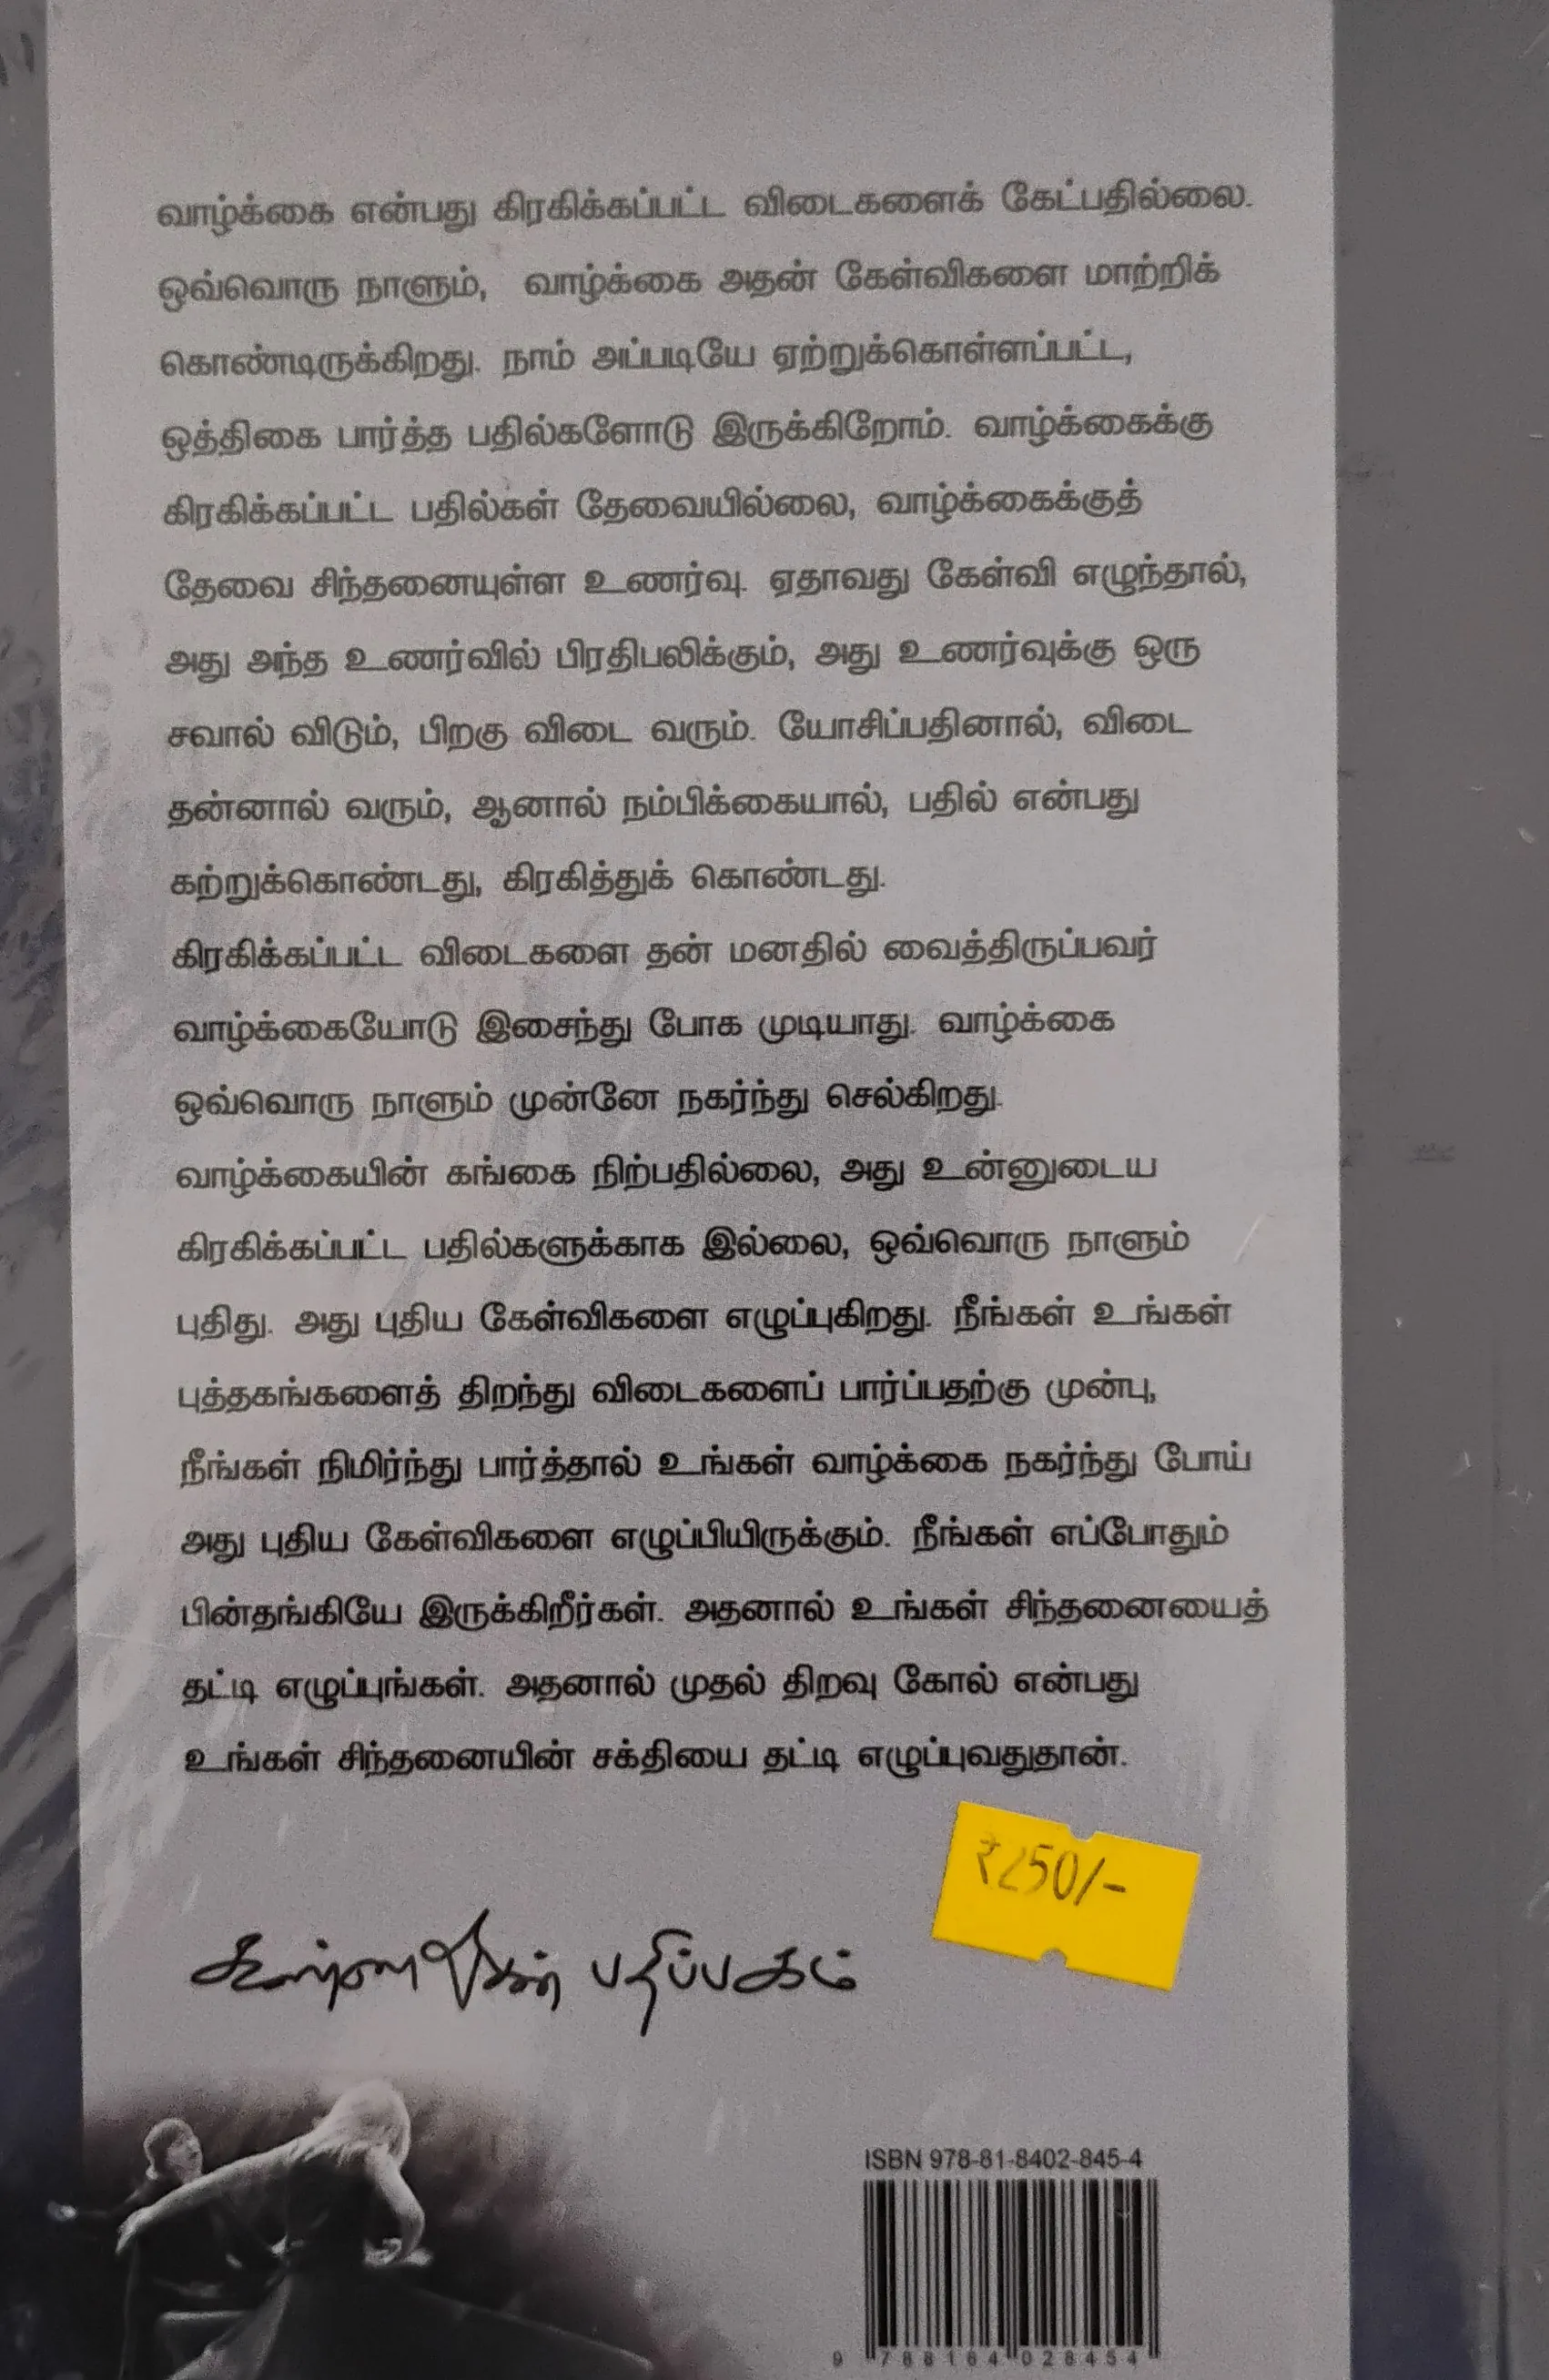 வாழ்க்கை என்பது கிரகிக்கப்பட்ட விடைகளைக் கேட்பதில்லை.
ஒவ்வொரு நாளும், வாழ்க்கை அதன் கேள்விகளை மாற்றிக்
கொண்டிருக்கிறது. நாம் அப்படியே ஏற்றுக்கொள்ளப்பட்ட,
ஒத்திகை பார்த்த பதில்களோடு இருக்கிறோம். வாழ்க்கைக்கு
கிரகிக்கப்பட்ட பதில்கள் தேவையில்லை, வாழ்க்கைக்குத்
தேவை சிந்தனையுள்ள உணர்வு. ஏதாவது கேள்வி எழுந்தால்,
அது அந்த உணர்வில் பிரதிபலிக்கும், அது உணர்வுக்கு ஒரு
சவால் விடும், பிறகு விடை வரும். யோசிப்பதினால், விடை
தன்னால் வரும், ஆனால் நம்பிக்கையால், பதில் என்பது
கற்றுக்கொண்டது, கிரகித்துக் கொண்டது.
கிரகிக்கப்பட்ட விடைகளை தன் மனதில் வைத்திருப்பவர்
வாழ்க்கையோடு இசைந்து போக முடியாது. வாழ்க்கை
ஒவ்வொரு நாளும் முன்னே நகர்ந்து செல்கிறது.
வாழ்க்கையின் கங்கை நிற்பதில்லை, அது உன்னுடைய
கிரகிக்கப்பட்ட பதில்களுக்காக இல்லை, ஒவ்வொரு நாளும்
புதிது. அது புதிய கேள்விகளை எழுப்புகிறது. நீங்கள் உங்கள்
புத்தகங்களைத் திறந்து விடைகளைப் பார்ப்பதற்கு முன்பு,
நீங்கள் நிமிர்ந்து பார்த்தால் உங்கள் வாழ்க்கை நகர்ந்து போய்
அது புதிய கேள்விகளை எழுப்பியிருக்கும். நீங்கள் எப்போதும்
பின்தங்கியே இருக்கிறீர்கள். அதனால் உங்கள் சிந்தனையைத்
தட்டி எழுப்புங்கள். அதனால் முதல் திறவு கோல் என்பது
உங்கள் சிந்தனையின் சக்தியை தட்டி எழுப்புவதுதான்.
₹250/-
கண்ணதாசன் பதிப்பகம்
ISBN 978-81-8402-845-4
9 788184 028454